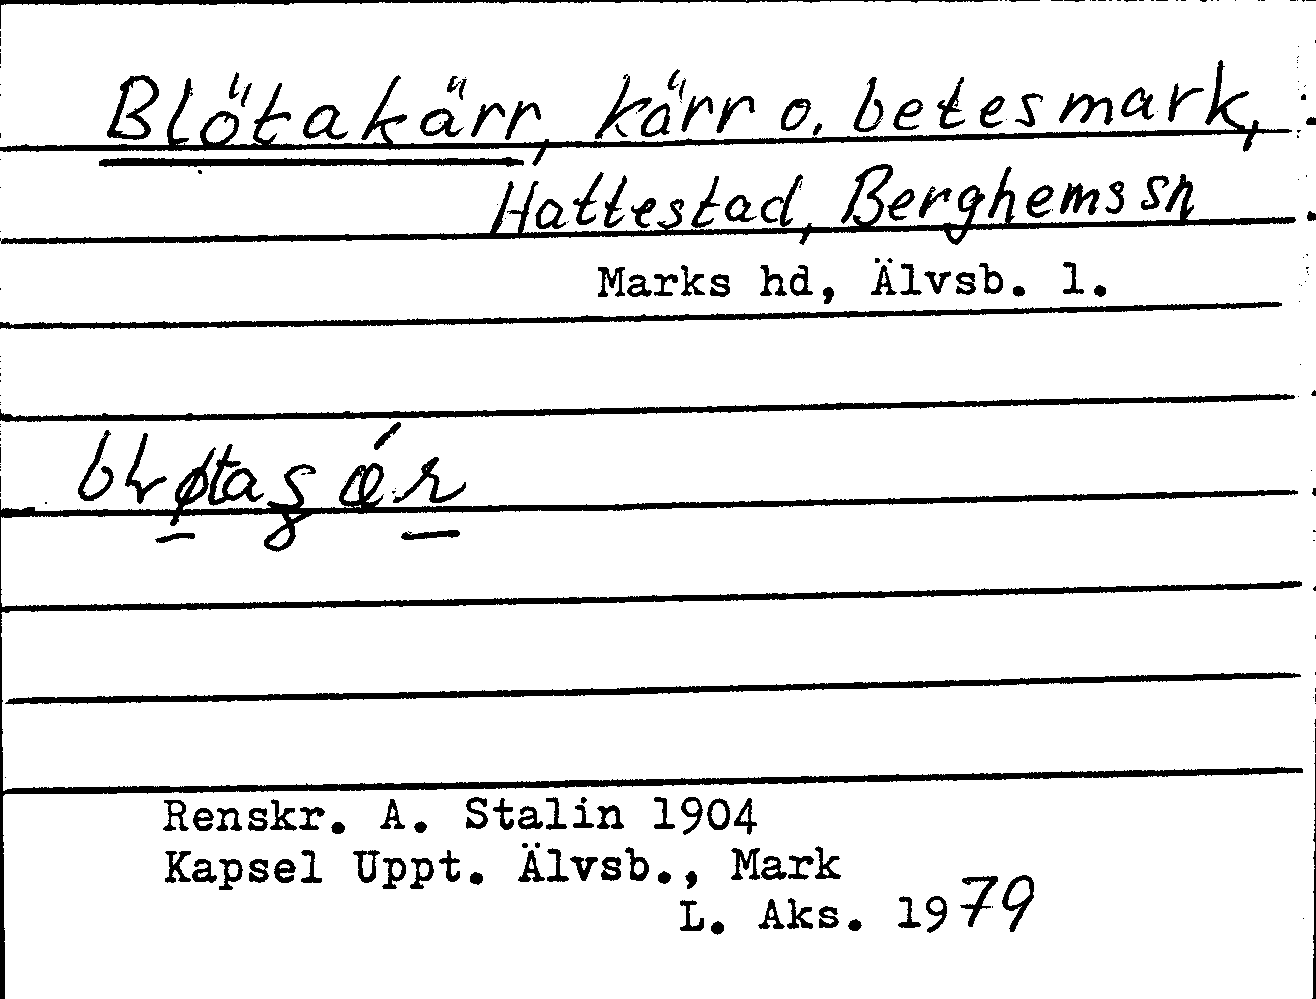 Blötakärr, kärr o. betesmark,
Hattestad, Berghems sn
Marks hd, Älvsb. l.
Renskr. A. Stalin 1904
Kapsel Uppt. Älvsb., Mark
L. Aks. 1979